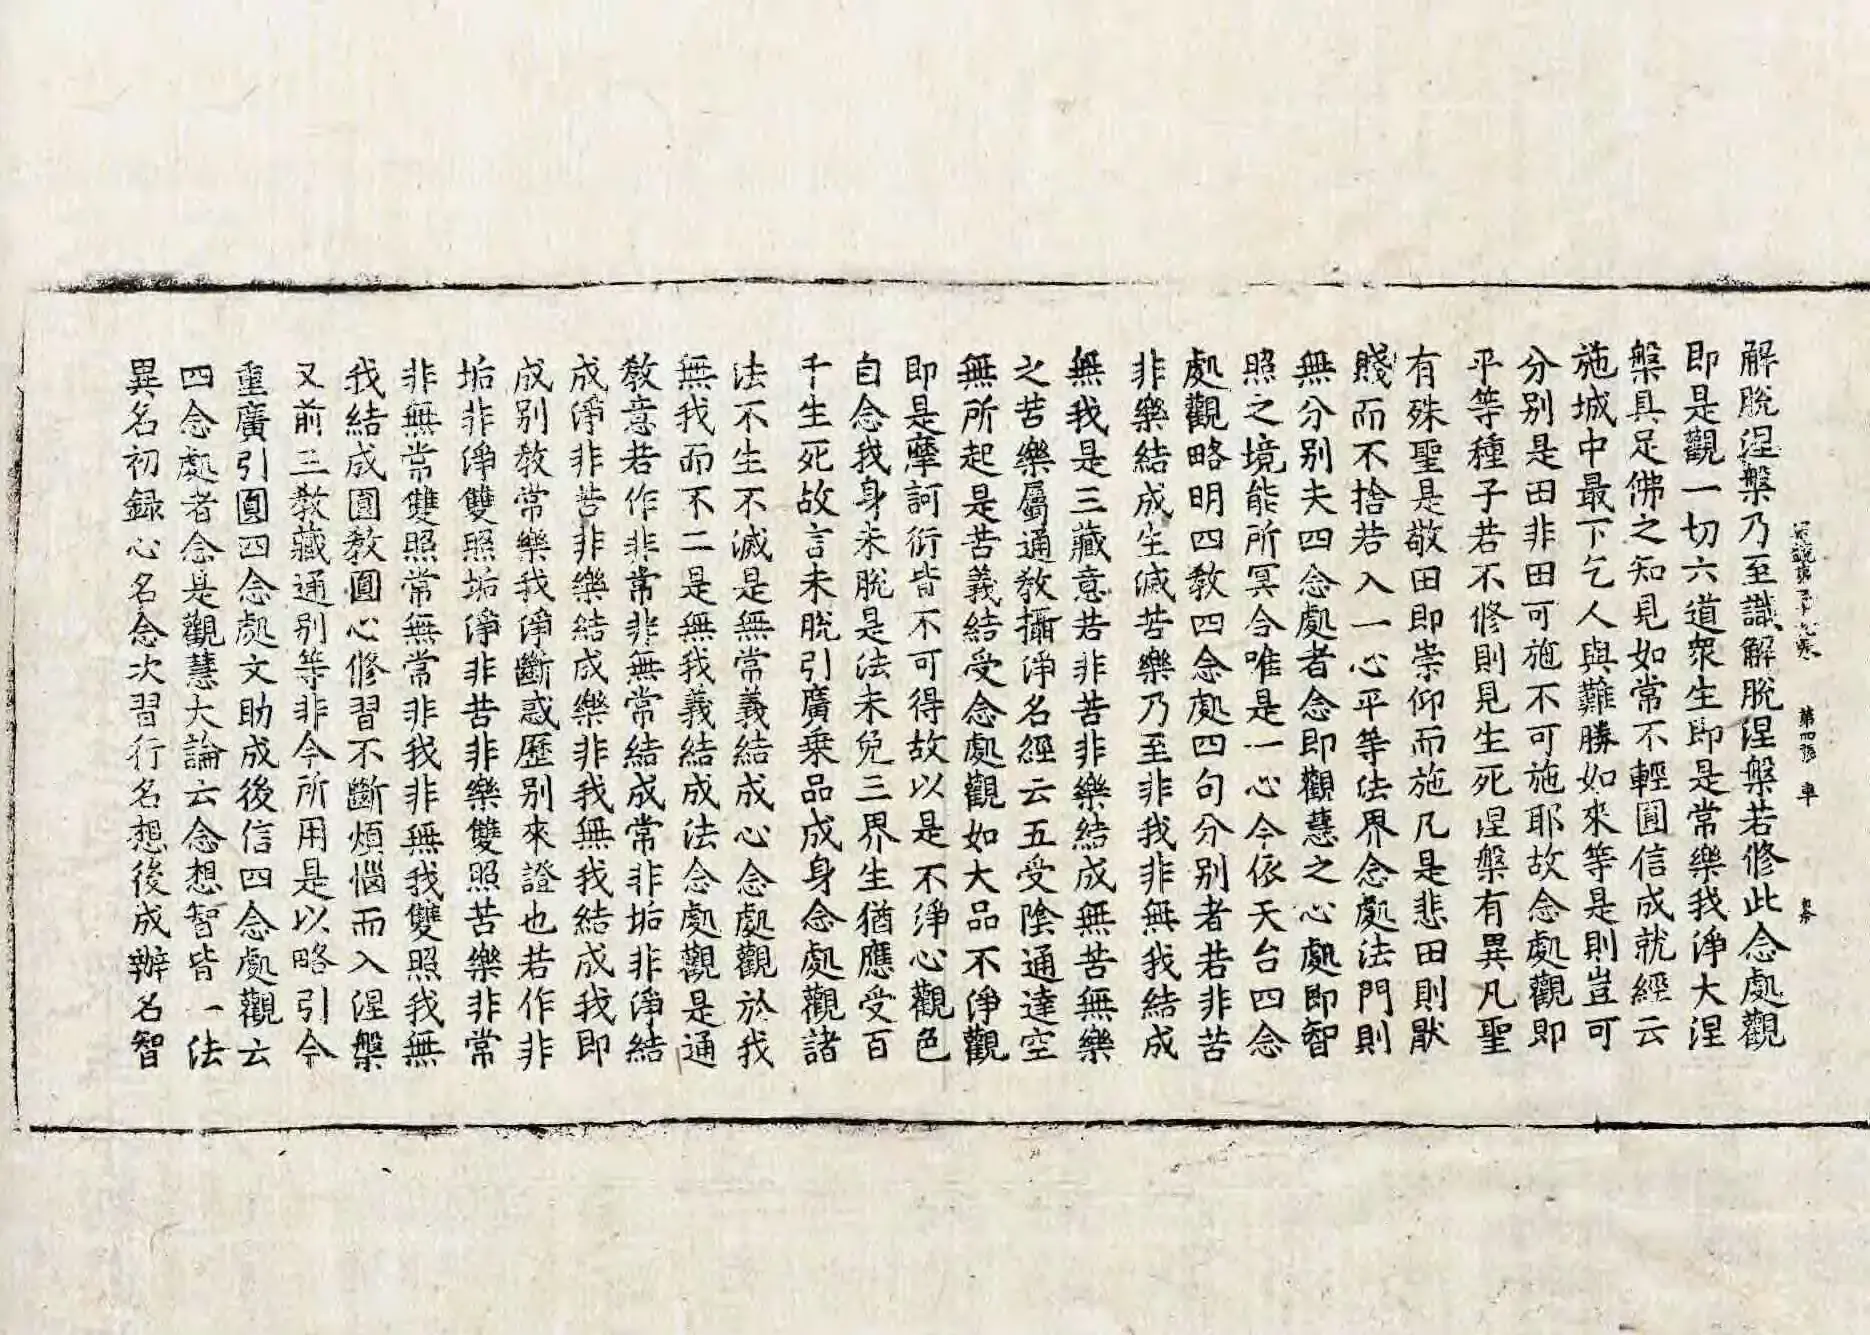 解脫涅槃乃至識解脫涅槃若修此念處觀
即是觀一切六道衆生即是常樂我淨大涅
槃具足佛之知見如常不輕圓信成就經云
施城中最下乞人與難勝如來等是則豈可
分別是田非田可施不可施耶故念處觀即
平等種子若不修則見生死涅槃有異凡聖
有殊聖是敬田即崇仰而施凡是悲田則猒
賤而不捨若入一心平等法界念處法門則
無分別夫四念處者念即觀慧之心處即智
照之境能所冥合唯是一心今依天台四念
處觀略明四教四念處四句分別者若非苦
非樂結成生滅苦樂乃至非我非無我結成
無我是三藏意若非苦非樂結成無苦無樂
之苦樂屬通教攝淨名經云五受陰通達空
無所起是苦義結受念處觀如大品不淨觀
即是摩訶衍皆不可得故以是不淨心觀色
自念我身未脫是法未免三界生猶應受百
千生死故言未脫引廣乗品成身念處觀諸
法不生不滅是無常義結成心念處觀於我
無我而不二是無我義結成法念處觀是通
教意若作非常非無常結成常非垢非淨結
成淨非苦非樂結成樂非我無我結成我即
成別教常樂我淨斷惑歷別來證也若作非
垢非淨雙照垢淨非苦非樂雙照苦樂非常
非無常雙照常無常非我非無我雙照我無
我結成圓教圓心修習不斷煩惱而入涅槃
又前三教藏通別等非今所用是以略引今
重廣引圓四念處文助成後信四念處觀云
四念處者念是觀慧大論云念想智皆一法
異名初録心名念次習行名想後成辦名智
第四張 車